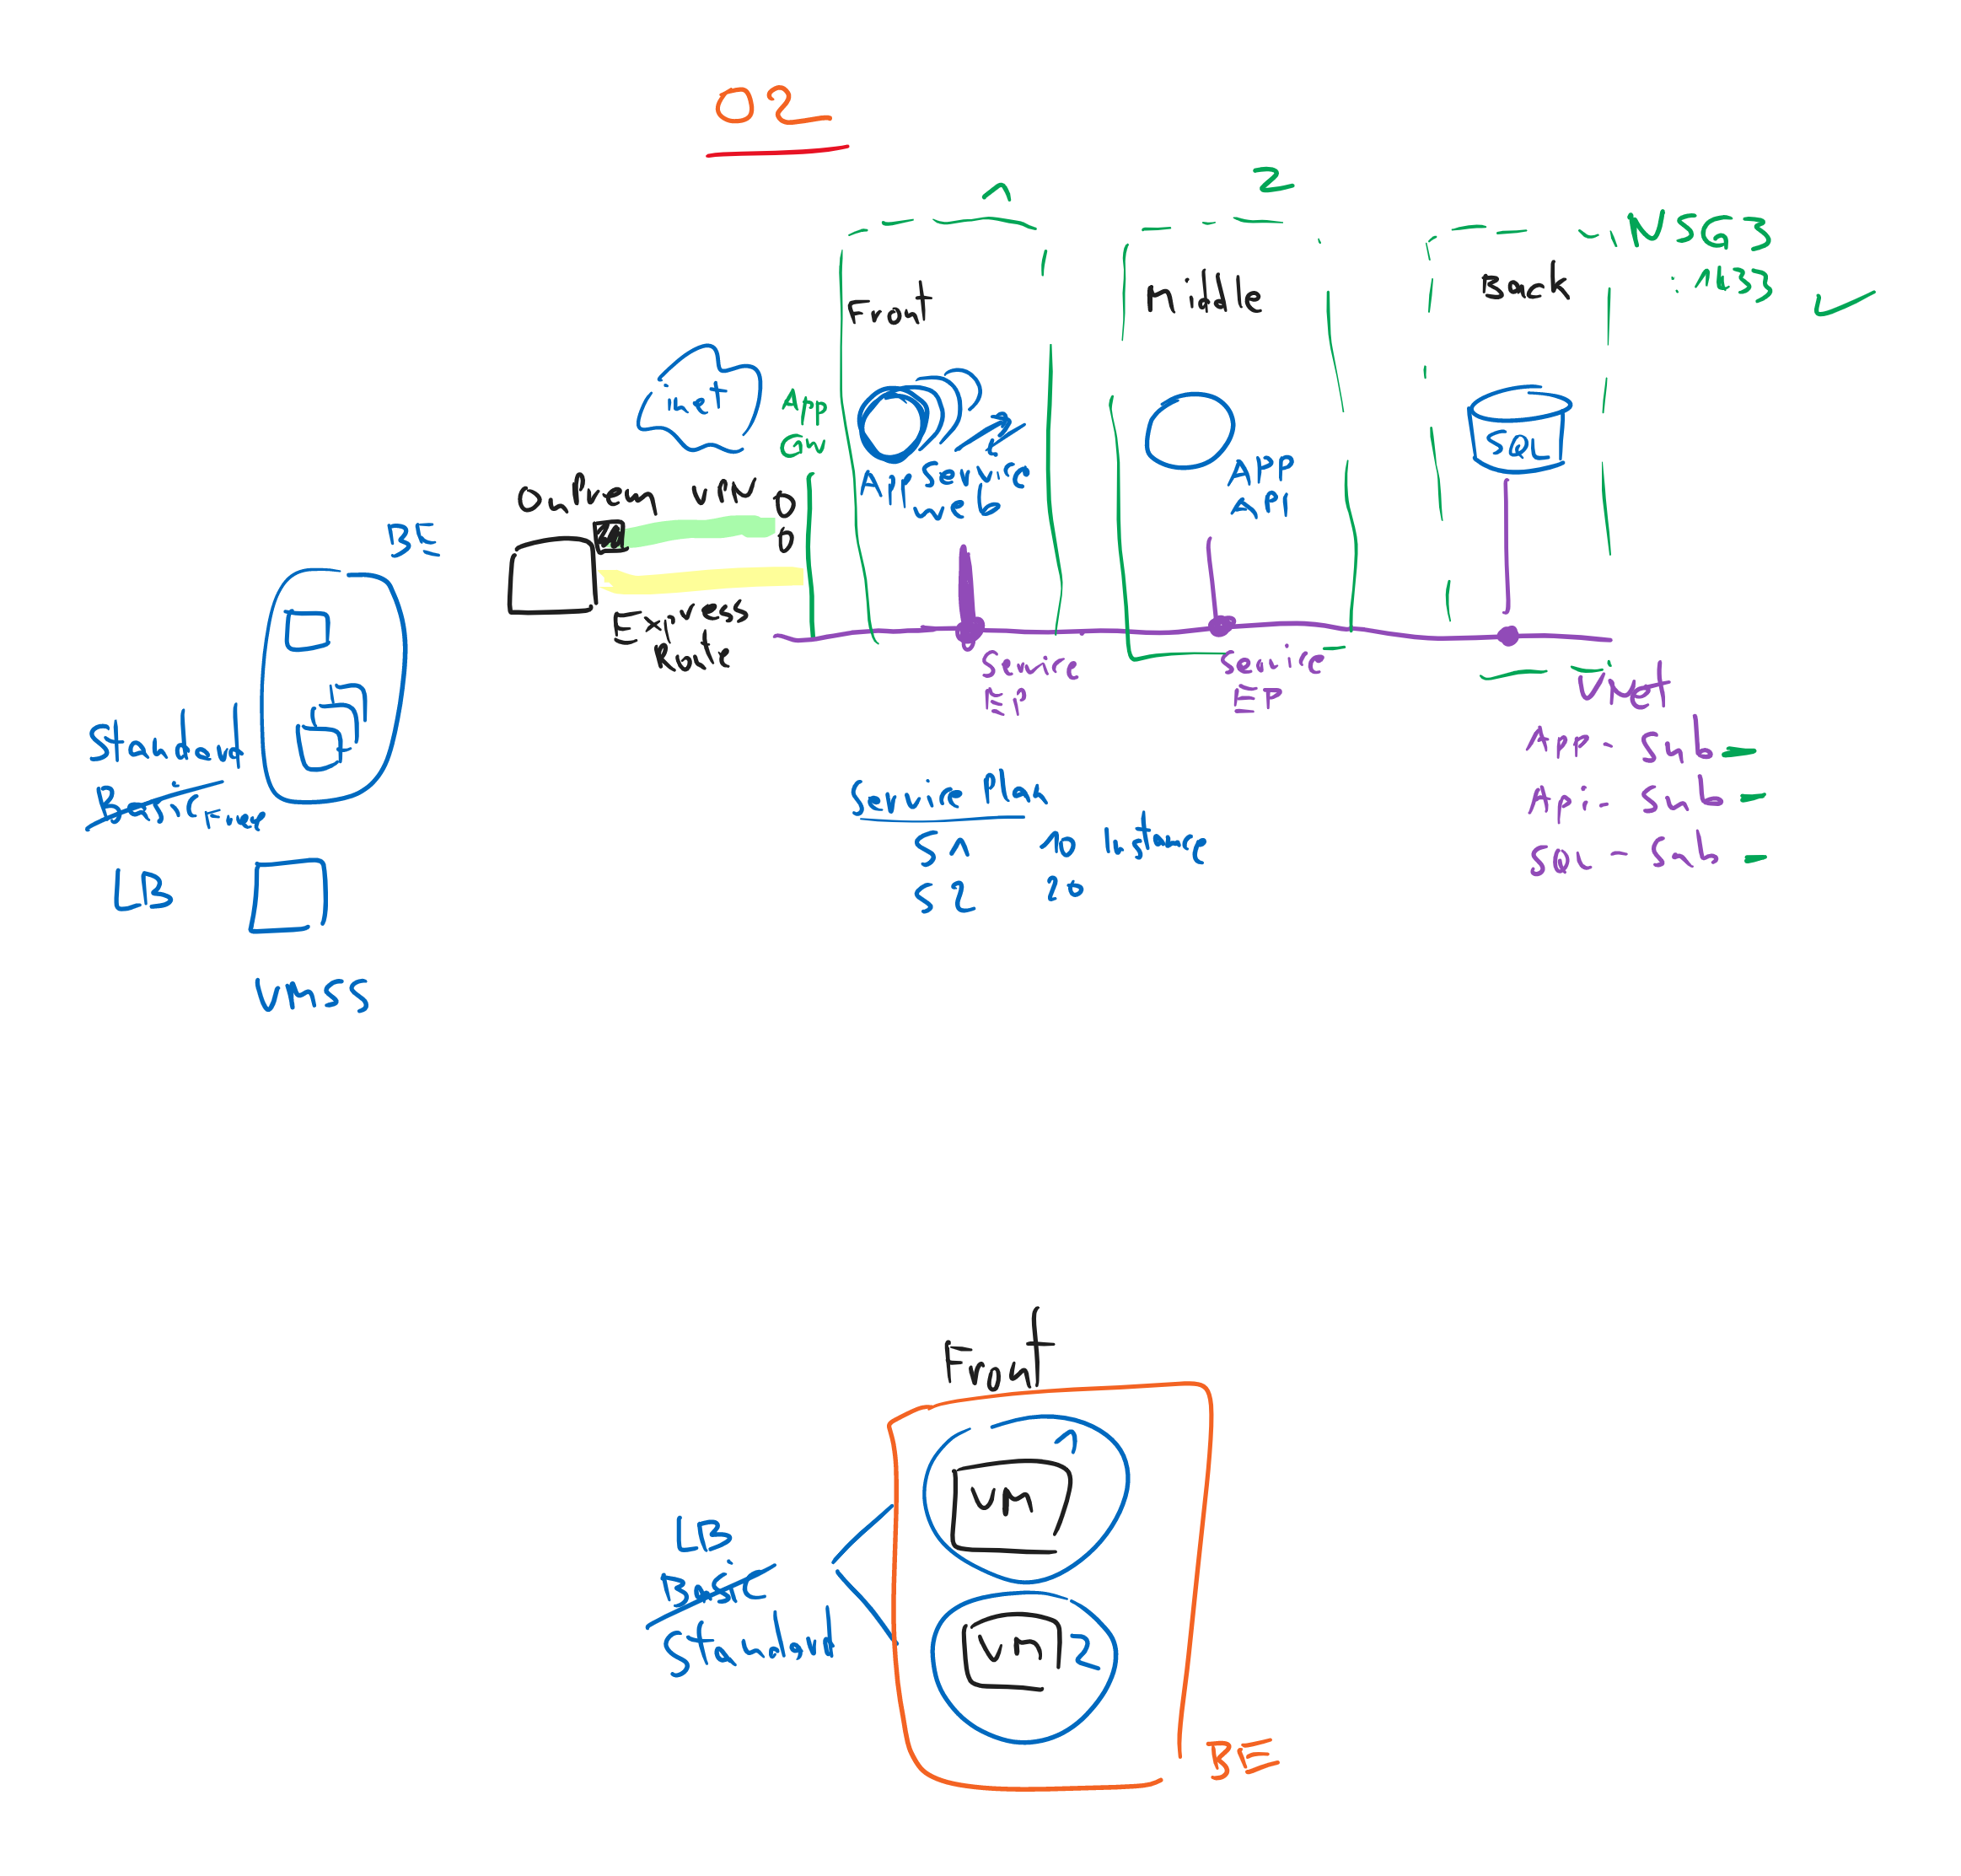 02
1
2
NSG3
:1433
Front
Middle
Back
inet
App
GW
SQL
App Service
Web
APP
API
OnPrem VPN
Express
Route
BE
Service
EP
Service
EP
Vnet
APP - Sub
Api - Sub
SQL - Sub
Standard
Basic Free
LB
VMSS
Service Plan
S1 10 Instance
S2 20
Front
1
VM
LB
Basic
Standard
VM 2
BE